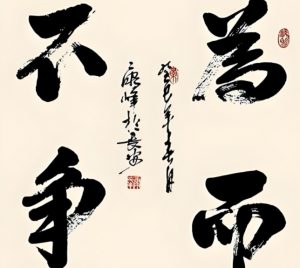 為而
不争
癸巳年春月
峰於長安